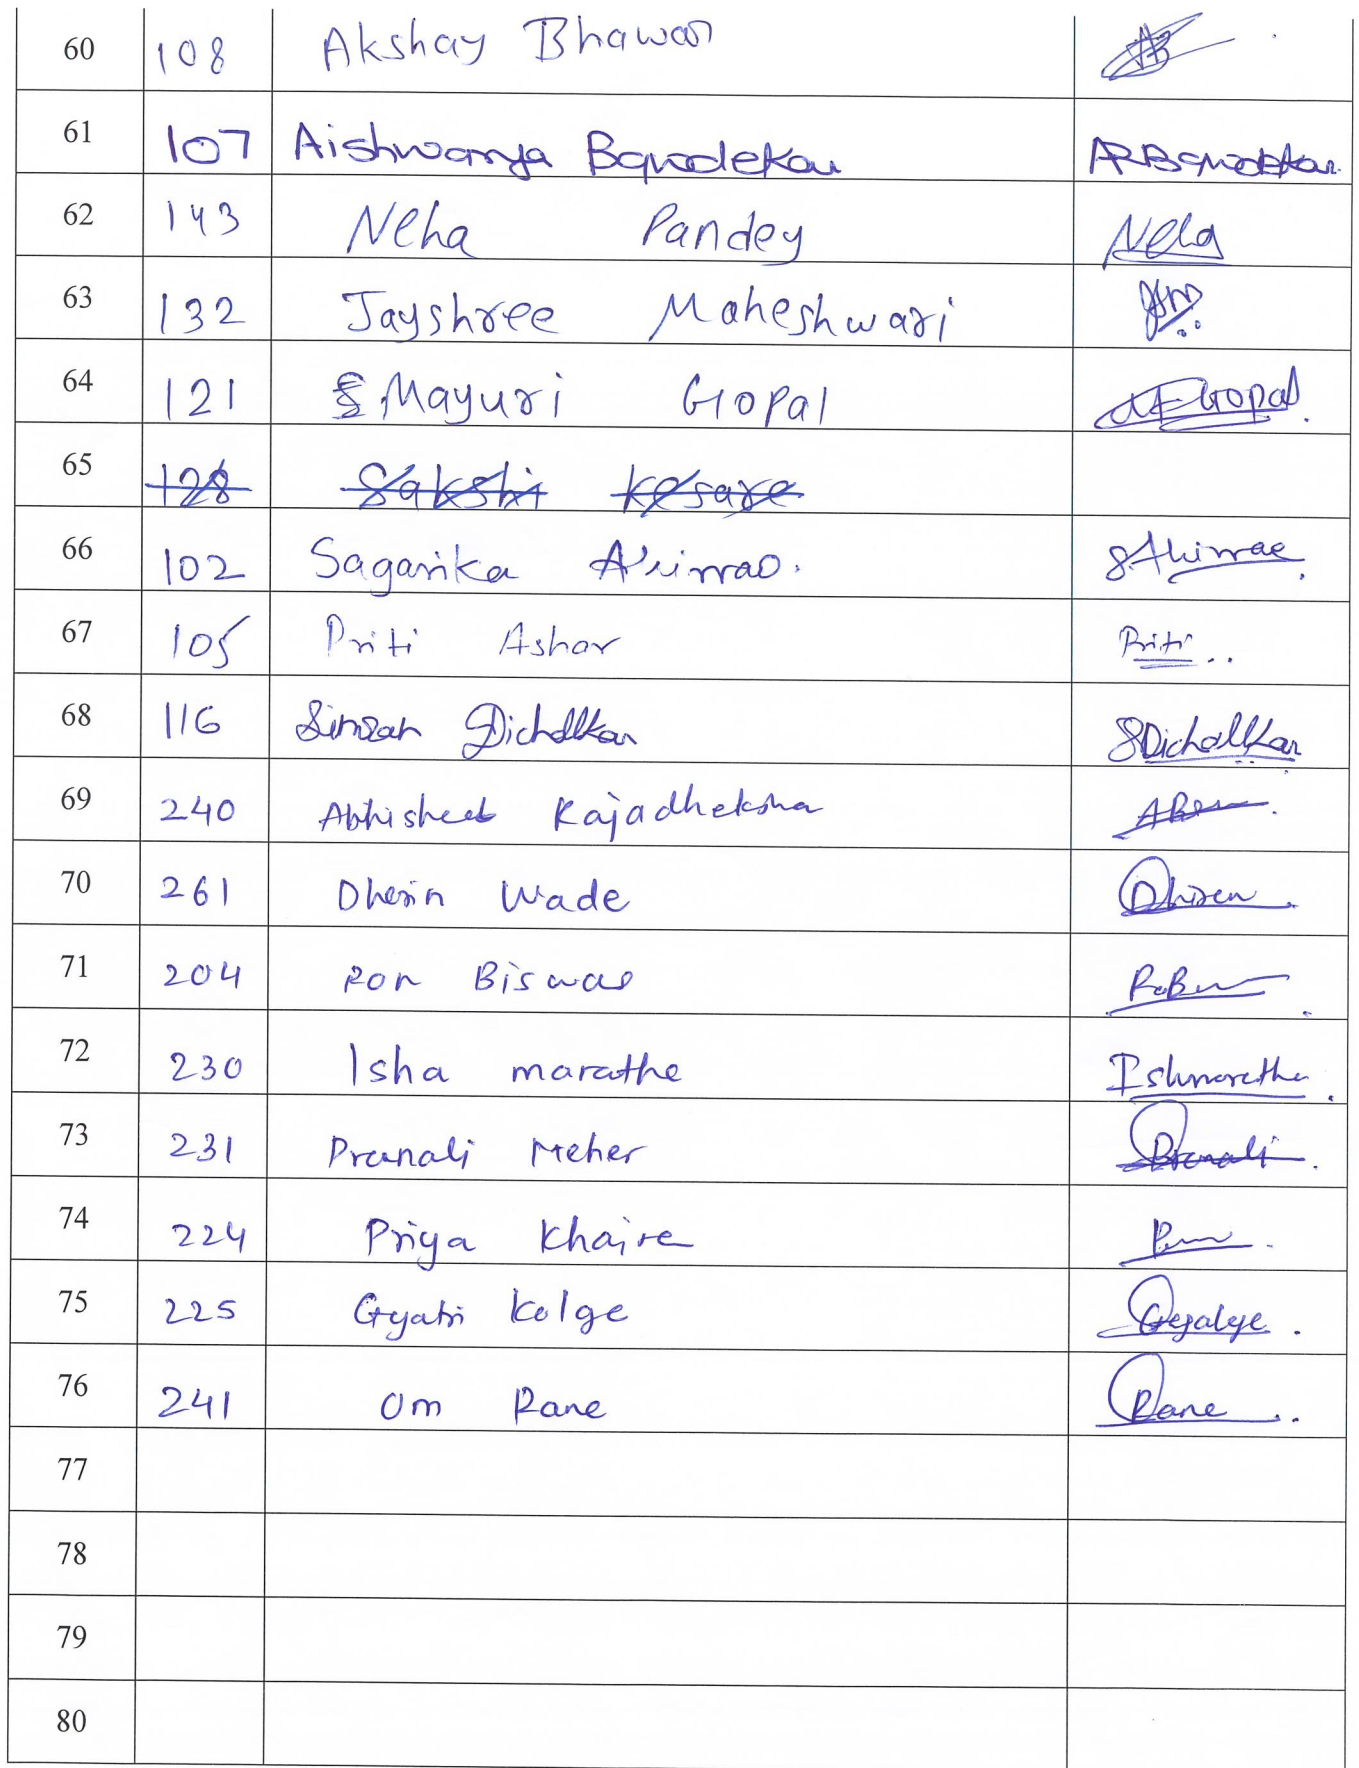 60 108 Akshay Bhawar AB
61 107 Aishwarya Bandekar
62 143 Neha Pandey Neha
63 132 Jayshree Maheshwari
64 121 Mayuri Gopal Gopal
65 128 Sakshi Kesare
66 102 Sagarika Ahirrao. S.Ahirrao
67 105 Priti Ashar Priti
68 116 Simran Dicholkar SDicholkar
69 240 Abhisheek
70 261 Dherin Wade Dhiren
71 204 Ron Biswas
72 230 Isha marathe
73 231 Pranali Meher Pranali
74 224 Priya Khaire
75 225 Gyatri Kolge
76 241 Om Rane Rane
77
78
79
80